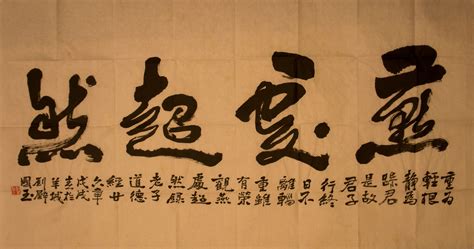 燕處超然
重為
輕根
靜為
躁君
是故
君子
行終
日不
離輜
重雖
有榮
觀燕
處超
然錄
老子
道德
經廿
六章
戊戌
於
羊城
劉
國玉